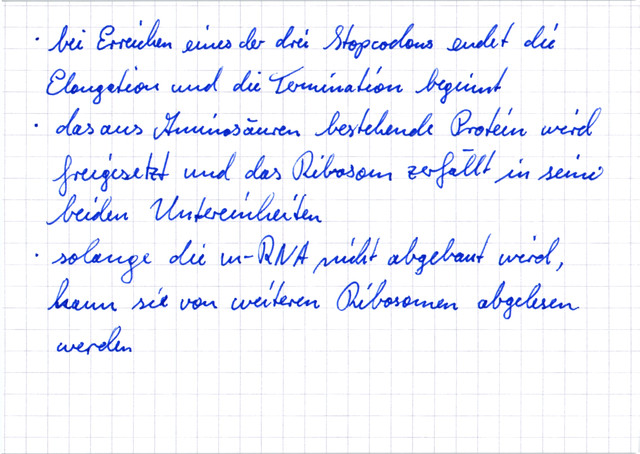 · bei Erreichen eines der drei Stopcodons endet die
Elongation und die Termination beginnt
· das aus Aminosäuren bestehende Protein wird
freigesetzt und das Ribosom zerfällt in seine
beiden Untereinheiten
· solange die m-RNA nicht abgebaut wird,
kann sie von weiteren Ribosomen abgelesen
werden